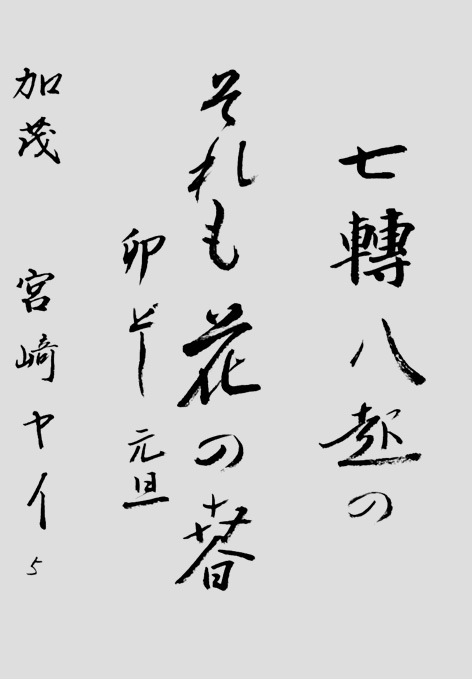 七轉八起の
それも花の春
卯どし 元旦
加茂 宮﨑ヤイ 5